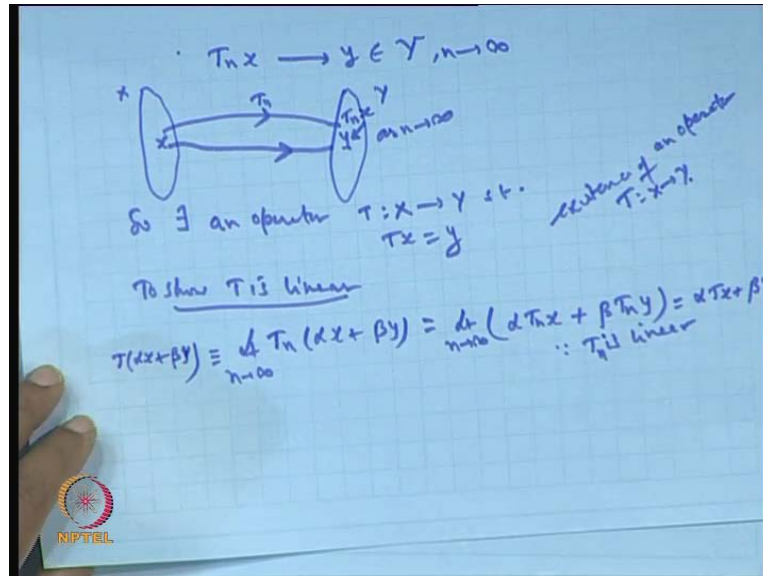 Tn x → y ∈ Y, n→∞
X Tn Y
x Tn x
y as n→∞
So ∃ an operator T : X → Y s.t.
Tx = y
existence of an operator
T : X → Y.
To show T is linear
T(αx+βy) ≡ lt Tn (αx + βy) = lt (α Tn x + β Tn y) = αTx + βT
n→∞ n→∞ ∵ Tn is linear
NPTEL